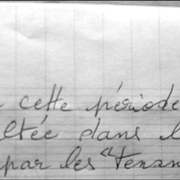 cette période
ltée dans l
par les "Tenan